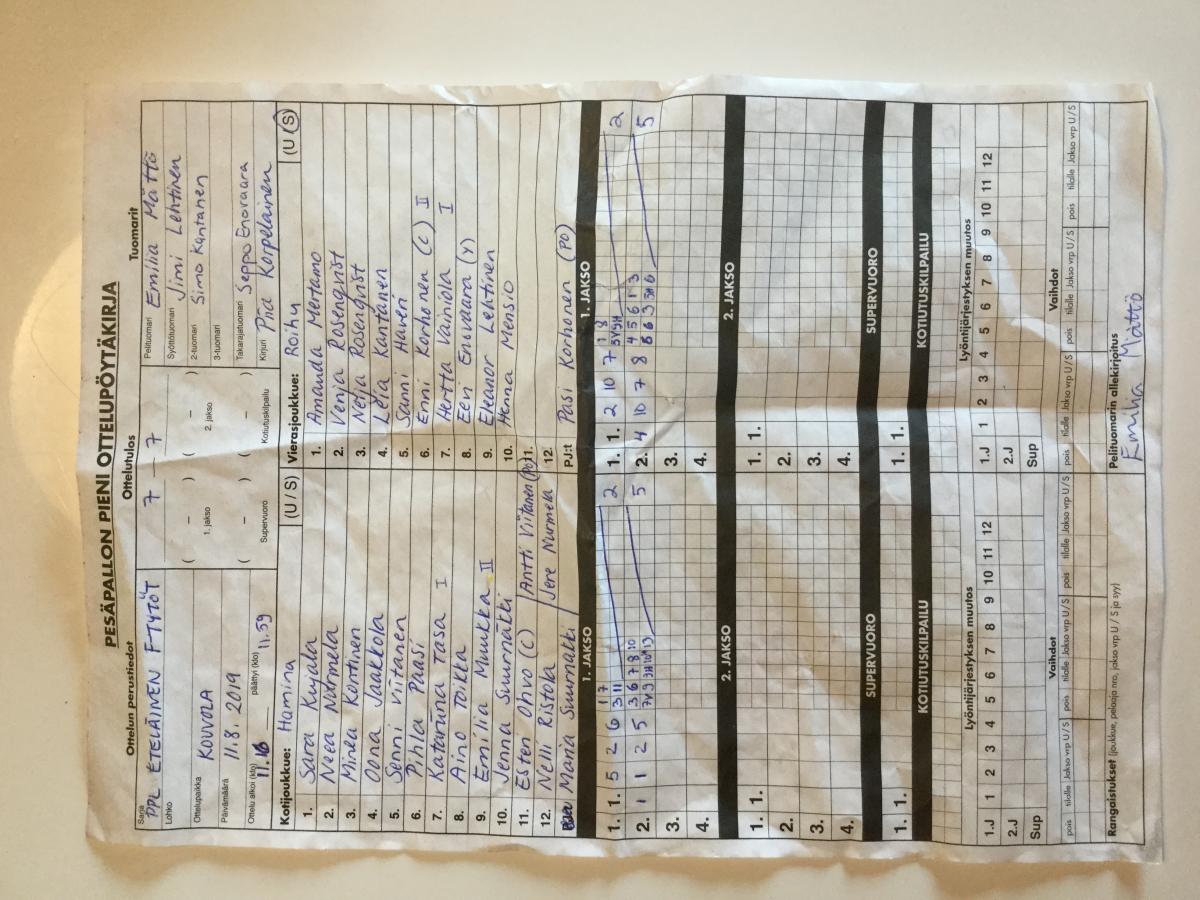 PESÄPALLON PIENI OTTELUPÖYTÄKIRJA
Ottelun perustiedot
Sarja PPL ETELÄINEN F-TYTÖT
Lohko
Ottelupaikka KOUVOLA
Päivämäärä 11.8. 2019
Ottelu alkoi (klo) 11.16 päättyi (klo) 11.59
Ottelutulos
7 – 7
( – ) ( – )
1. jakso 2. jakso
( – ) ( – )
Supervuoro Kotiutuskilpailu
Tuomarit
Pelituomari Emilia Mättö
Syöttötuomari Jimi Lehtinen
2-tuomari Simo Kantanen
3-tuomari
Takarajatuomari Seppo Enovaara
Kirjuri Piia Korpelainen
Kotijoukkue: Hamina (U / S)
1. Sara Kujala
2. Neea Nurmela
3. Minea Kortinen
4. Oona Jaakkola
5. Senni Viitanen
6. Pihla Paasi
7. Katariina Tasa I
8. Aino Toikka
9. Emilia Muukka II
10. Jenna Suurnäkki
11. Esteri Ohvo (C) Antti Viitanen (PJ)
12. Nelli Ristola Jere Nurmela
Maria Suurnäkki
Vierasjoukkue: Roihu (U / S)
1. Amanda Mertamo
2. Venja Rosenqvist
3. Nelja Rosenqvist
4. Leia Kantanen
5. Sanni Haveri
6. Enni Korhonen (C) II
7. Hertta Vainiola I
8. Eeri Enovaara (Y)
9. Eleanor Lehtinen
10. Henna Mensio
11.
12.
PJ:t Pasi Korhonen (PO)
1. JAKSO 1. JAKSO
1. 1. 5 2 6 2
2. 1 2 5 5
3.
4.
1. 1. 2 10 7 2
2. 4 10 7 8 5
3.
4.
2. JAKSO 2. JAKSO
1. 1.
2.
3.
4.
1. 1.
2.
3.
4.
SUPERVUORO SUPERVUORO
1. 1. 1. 1.
KOTIUTUSKILPAILU KOTIUTUSKILPAILU
Lyöntijärjestyksen muutos
1.J 1 2 3 4 5 6 7 8 9 10 11 12
2.J
Sup
Lyöntijärjestyksen muutos
1.J 1 2 3 4 5 6 7 8 9 10 11 12
2.J
Sup
Vaihdot
pois tilalle Jakso vrp U / S pois tilalle Jakso vrp U / S pois tilalle Jakso vrp U / S
Vaihdot
pois tilalle Jakso vrp U / S pois tilalle Jakso vrp U / S pois tilalle Jakso vrp U / S
Rangaistukset (joukkue, pelaaja nro, jakso vrp U / S ja syy)
Pelituomarin allekirjoitus
Emilia Mättö